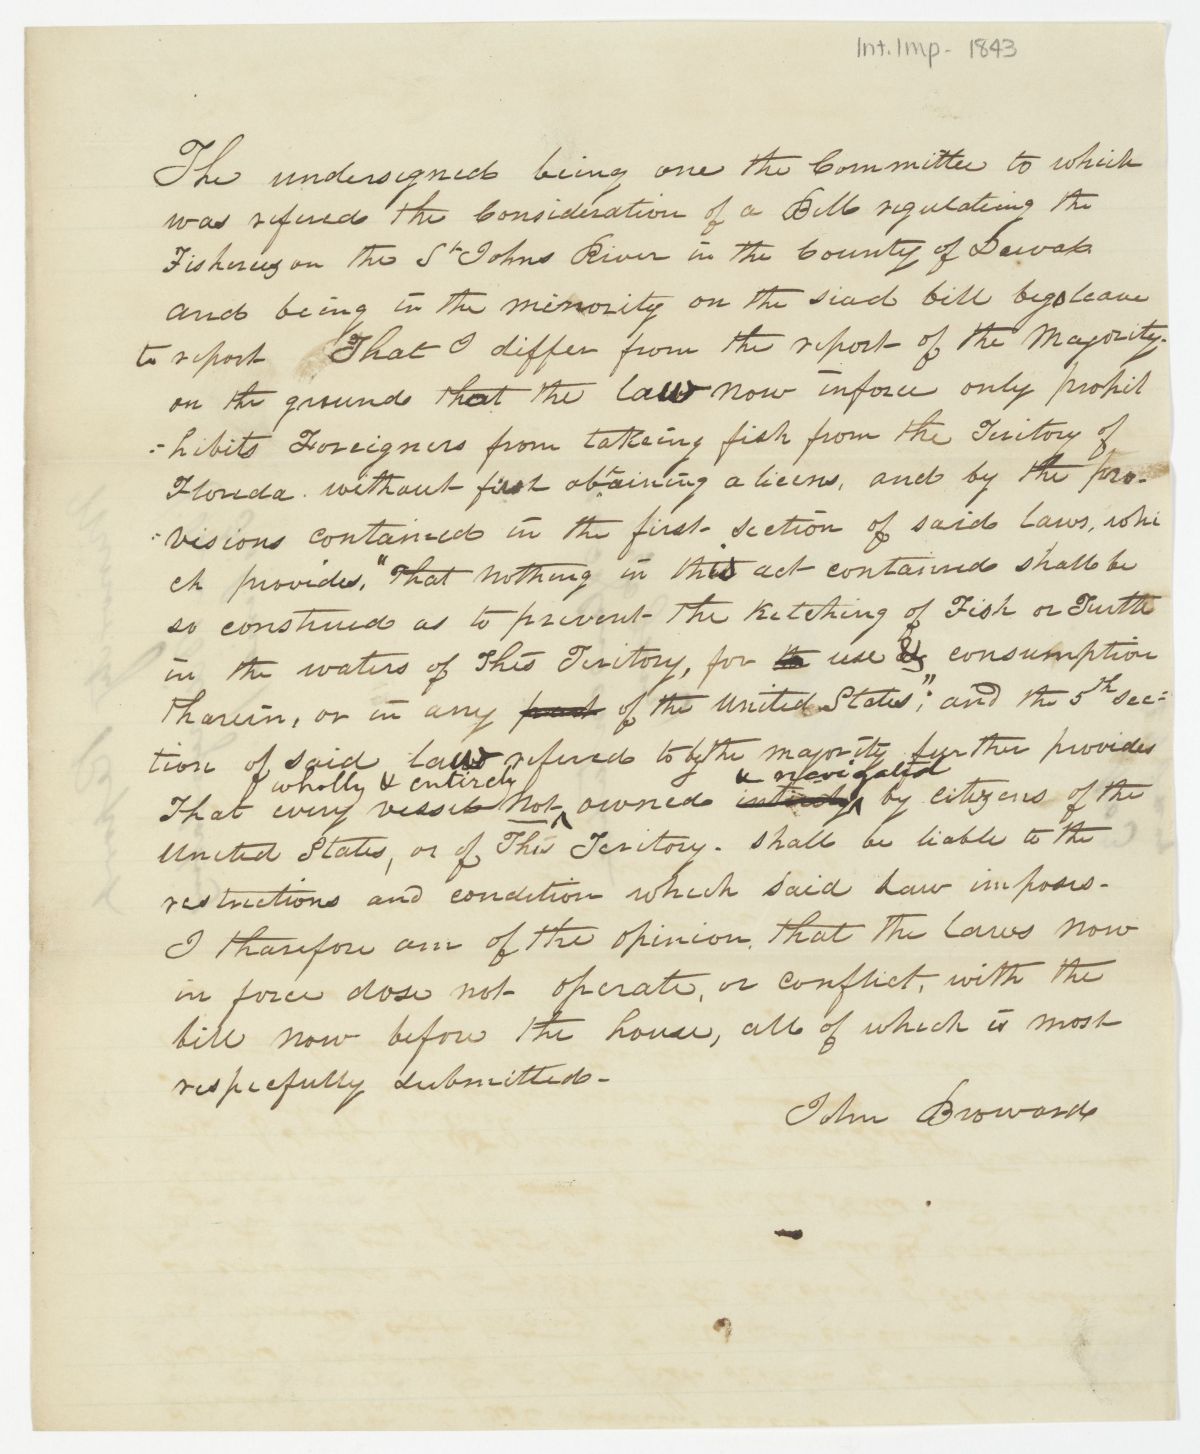 Int. Imp - 1843
The undersigned being one the Committee to which
was refered the Consideration of a Bill regulating the
Fisheries on the St Johns River in the County of Dewak
and being in the minority on the siad bill begs leave
to report That I differ from the report of the Majority.
on the ground that the law now inforce only prohit
-hibits Foreigners from takeing fish from the Teritory of
Florida. without first obtaining a licens, and by the pro-
-visions contained in the first section of said laws, whi
ch provides, "That nothing in this act contained shall be
so construed as to prevent the Ketching of Fish or Turtle
in the waters of This Teritory, for the use & consumption
tharein, or in any part of the United States"; and the 5th sec-
tion of said law refered to by the majority further provides
wholly & entirely & navigated
That every vessel not owned intirely by citizens of the
United States, or of This Teritory. shall be liable to the
restrictions and condition which said Law imposes.
I tharefore am of the opinion, that the Laws now
in force dose not operate, or conflict, with the
bill now before the house, all of which is most
respecfully submitted-
John Broward